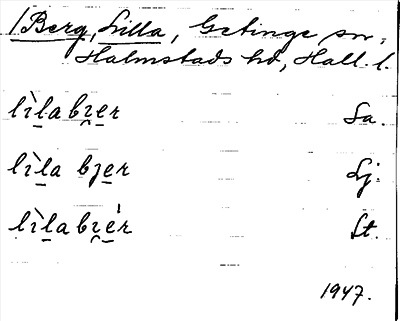 /Berg, Lilla, Getinge sn,
Halmstads hd, Hall. l.
lìlabi̯er Sa.
lìla bjer Lj.
lìlabi̯er St.
1947.